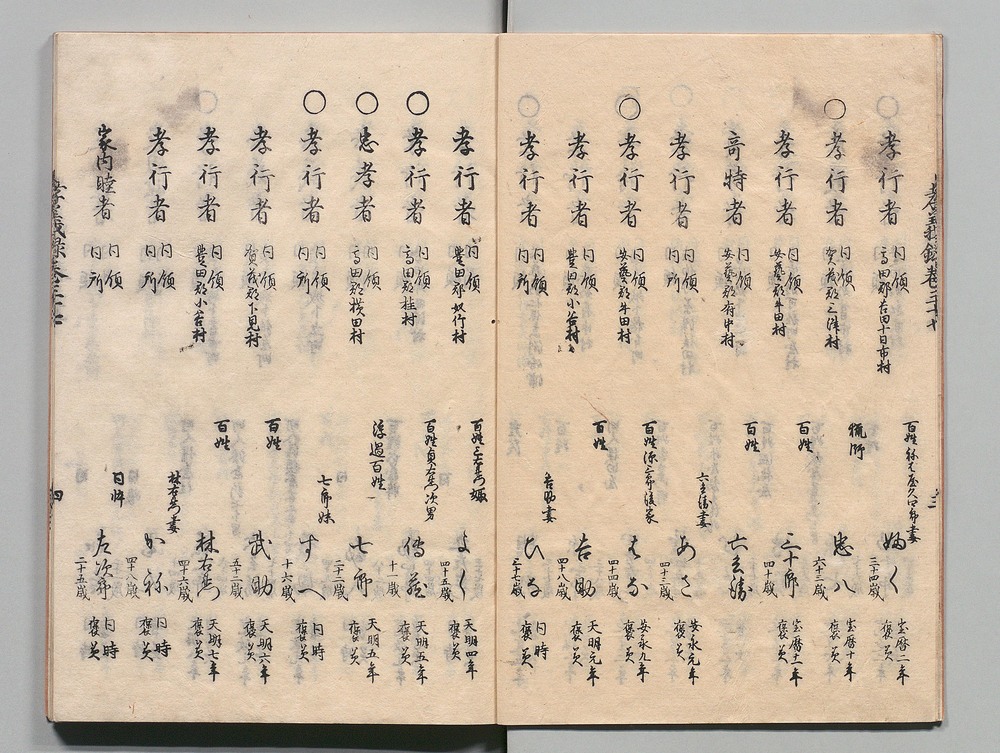 孝行者 同領高田郡吉田十日市村 三十四歳 宝暦二年褒美
孝行者 同領賀茂郡三津村 猟師 忠八 六十三歳 宝暦十年褒美
孝行者 同領安藝郡牛田村 百姓 三十郎 四十歳 宝暦十一年褒美
奇特者 同領安藝郡府中村 百姓 六兵衛
孝行者 同領同所 六兵衛妻 あさ 四十三歳 安永元年褒美
孝行者 同領安藝郡牛田村 百姓源三郎後家 はな 四十四歳 安永九年褒美
孝行者 同領豊田郡小谷村 百姓 吉助 四十八歳 天明元年褒美
孝行者 同領同所 吉助妻 ひな 三十七歳 同時褒美
孝行者 同領豊田郡奴可村 四十五歳 天明四年褒美
孝行者 同領高田郡桂村 百姓貞右衛門次男 傳蔵 十一歳 天明五年褒美
忠孝者 同領高田郡横田村 浮過百姓 七郎 二十二歳 天明五年褒美
孝行者 同領同所 七郎妹 すへ 十六歳 同時褒美
孝行者 同領賀茂郡下見村 百姓 武助 五十二歳 天明六年褒美
孝行者 同領豊田郡小谷村 百姓 林右衛門 四十六歳 天明七年褒美
孝行者 同領同所 林右衛門妻 かね 四十八歳 同時褒美
家内睦者 同領同所 同忰 左次郎 二十五歳 同時褒美
孝義録巻三十七
四
三